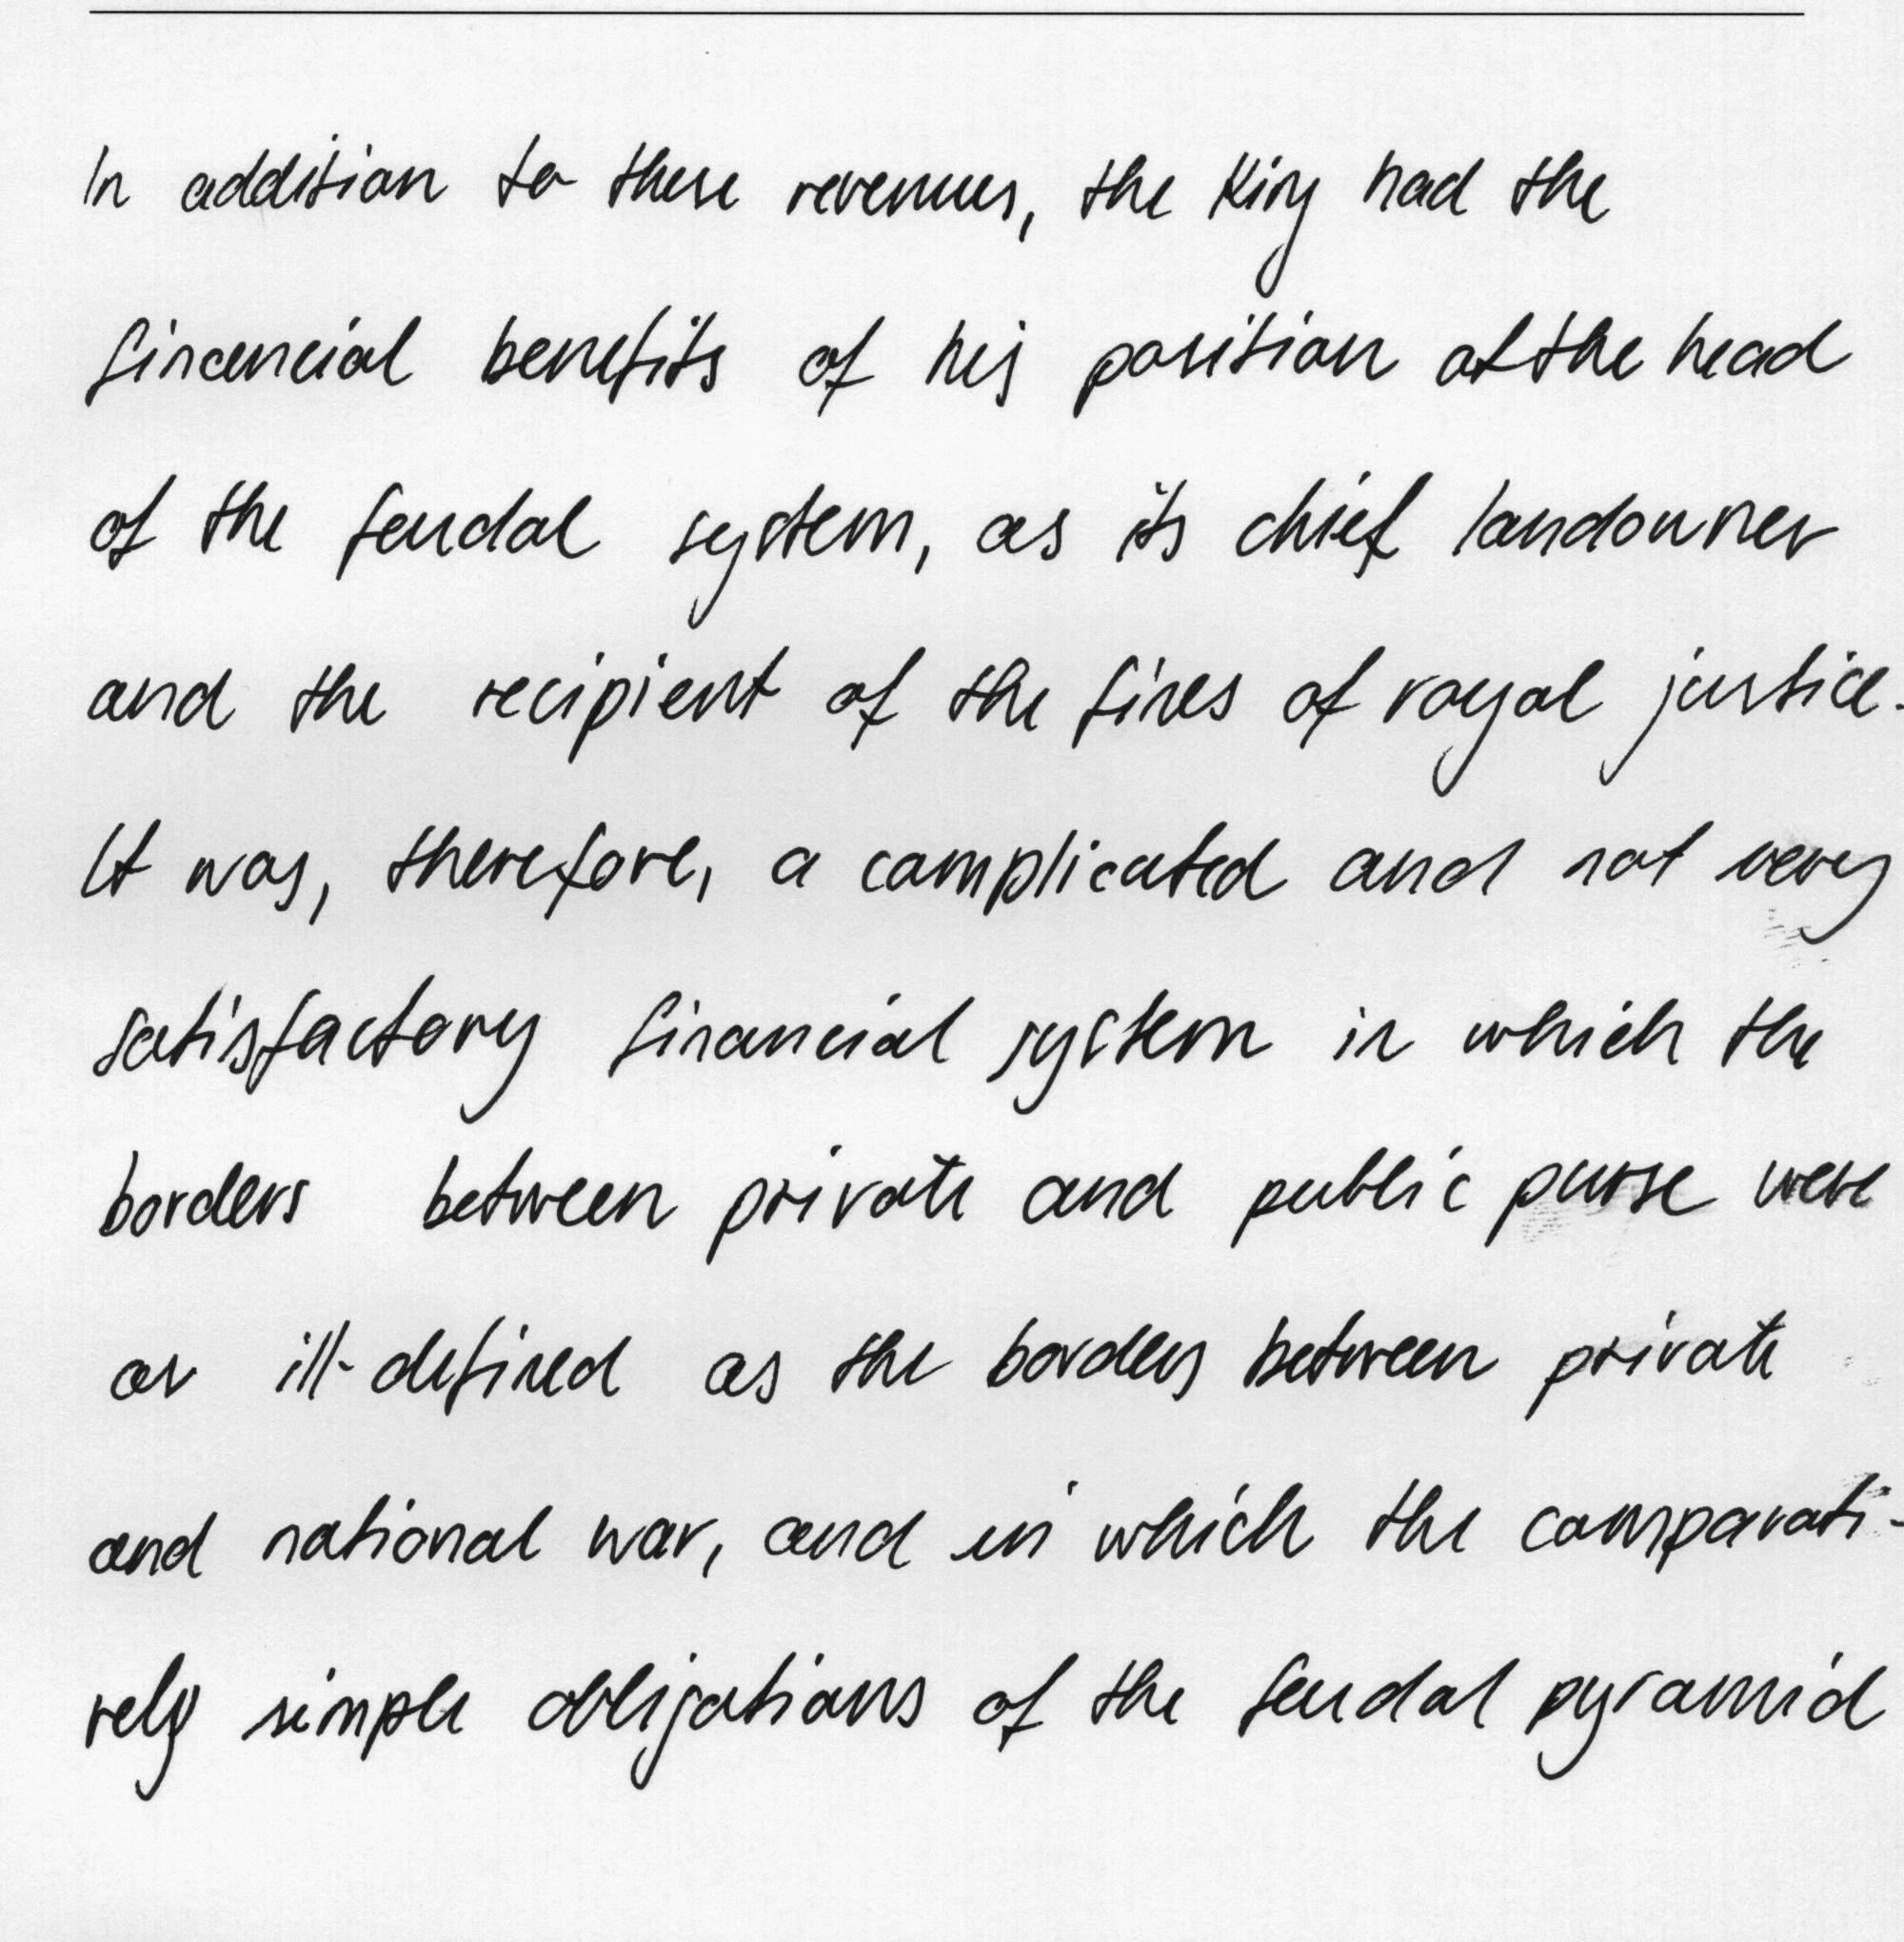 In addition to these revenues, the King had the
financial benefits of his position at the head
of the feudal system, as its chief landowner
and the recipient of the fines of royal justice.
It was, therefore, a complicated and not very
satisfactory financial system in which the
borders between private and public purse were
as ill-defined as the borders between private
and national war, and in which the comparati-
vely simple obligations of the feudal pyramid